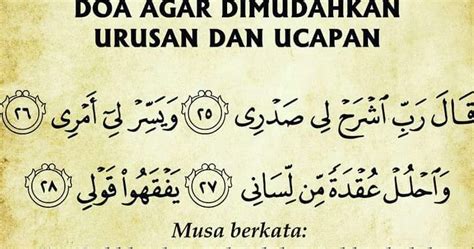 DOA AGAR DIMUDAHKAN
URUSAN DAN UCAPAN
قَالَ رَبِّ ٱشۡرَحۡ لِي صَدۡرِي ٢٥ وَيَسِّرۡ لِيٓ أَمۡرِي ٢٦
وَٱحۡلُلۡ عُقۡدَةٗ مِّن لِّسَانِي ٢٧ يَفۡقَهُواْ قَوۡلِي ٢٨
Musa berkata: